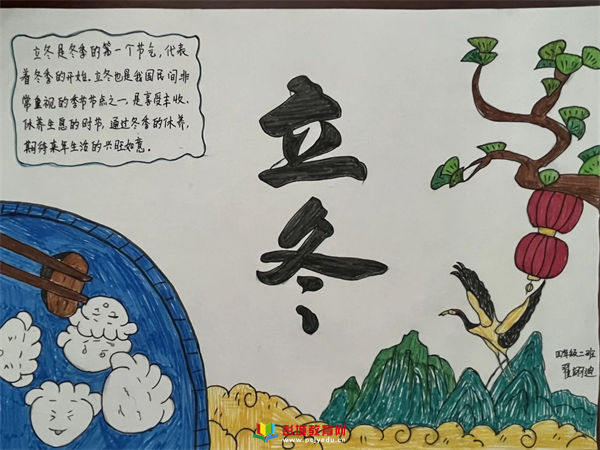 立冬是冬季的第一个节气,代表
着冬季的开始.立冬也是我国民间非
常重视的季节节点之一,是享受丰收、
休养生息的时节,通过冬季的休养,
期待来年生活的兴旺如意。
立冬
四年级二班
彭埠教育网
www.pejyedu.cn